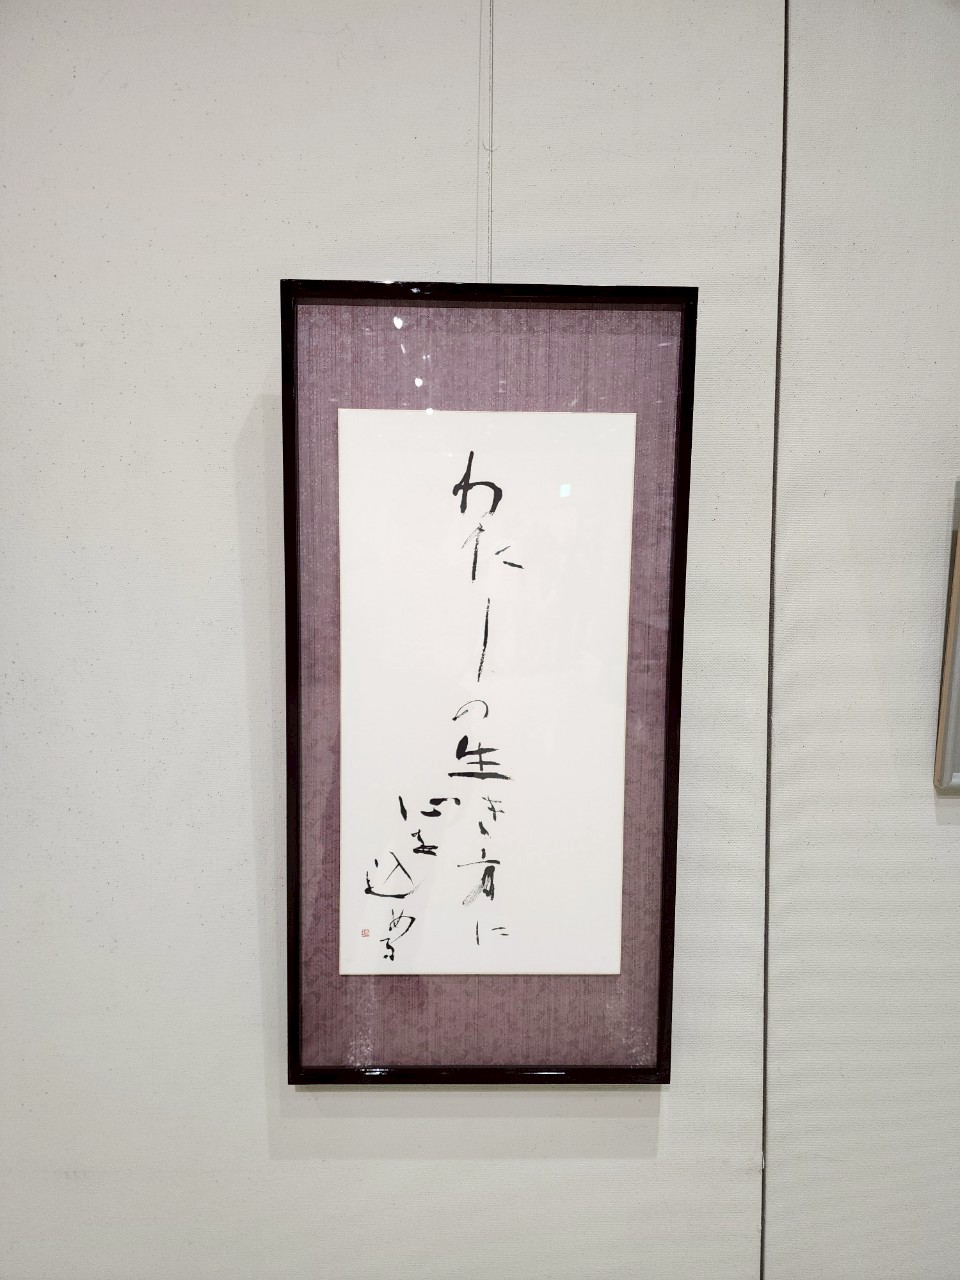 わたしの生き方に
心を込める